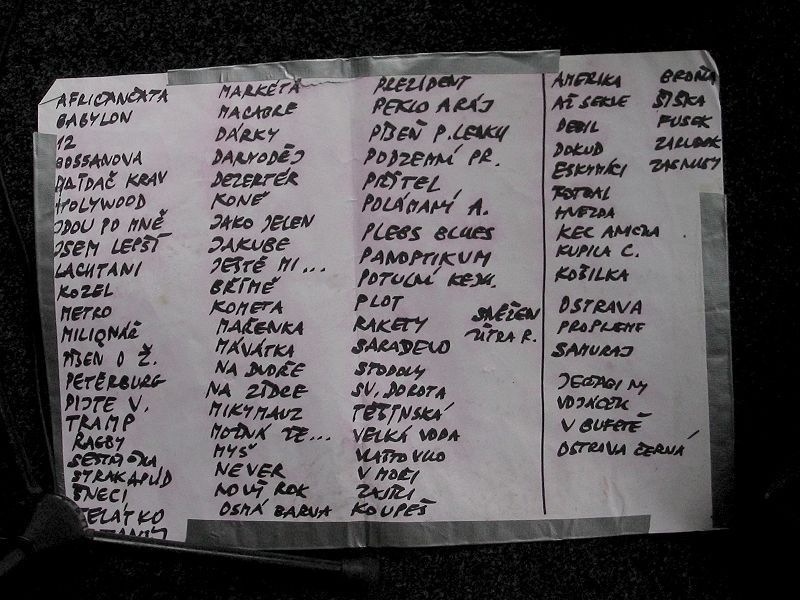 AFRIČANČATA
BABYLON
12
BOSSANOVA
HLÍDAČ KRAV
HOLYWOOD
JDOU PO MNĚ
JSEM LEPŠÍ
LACHTANI
KOZEL
METRO
MILIONÁŘ
PÍSEN O Ž.
PETĚRBURG
PIJTE V.
TRAMP
RAGBY
SESTŘIČKA
STRAKAPÚD
ŠNECI
TELÁTKO
MARKÉTA
MACABRE
DÁRKY
DARMODĚJ
DEZERTÉR
KONĚ
JAKO JELEN
JAKUBE
JEŠTĚ MI...
BŘÍMĚ
KOMETA
MAŘENKA
MÁVÁTKA
NA DVOŘE
NA ZÍDCE
MIKYMAUZ
MOŽNÁ ŽE...
MYŠ
NEVER
NOVÝ ROK
OSMÁ BARVA
PREZIDENT
PEKLO A RÁJ
PÍSEŇ P. LENKU
PODZEMNÍ PR.
PŘÍTEL
POLÁMANÝ A.
PLEBS BLUES
PANOPTIKUM
POTULNÍ KEJK.
PLOT
RAKETY
SARAJEVO
STODOLY
SV. DOROTA
TĚŠÍNSKÁ
VELKÁ VODA
VLAŠTOVKO
V MOŘI
ZATŘI
KOUPEŠ
SNĚŽEN
ZÍTRA R.
AMERIKA
AŽ SEKLE
DEBIL
DOKUD
ESKYMÁCI
FOTBAL
HVĚZDA
KEC ANIČKA
KUPILA C.
KOŠILKA
OSTRAVA
PROPLEME
SAMURAJ
VOJÁCEK
V BUFETĚ
OSTRAVA ČERNÁ
BROŇA
ŠIŠKA
FUSEK
ZALUDEK
ZASNUBY